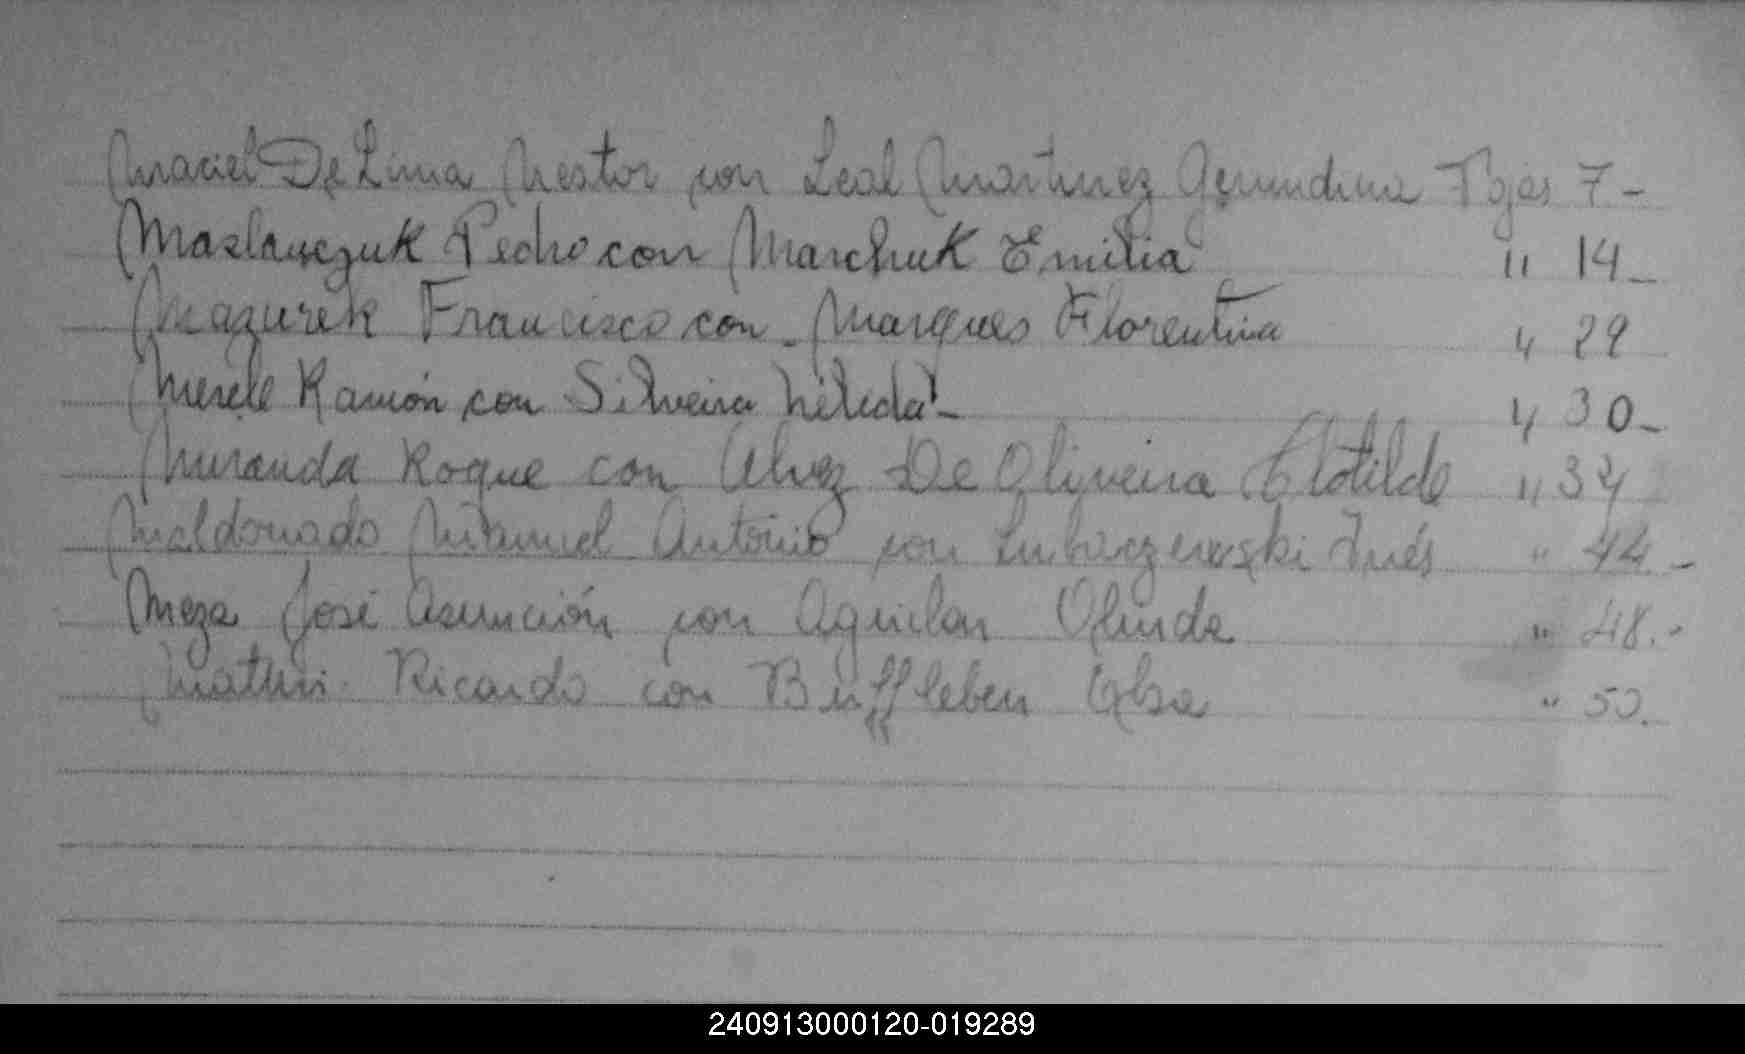 Maciel De Lima Nestor con Leal Martinez Gerundina Fojas 7-
Maslauczuk Pedro con Marchuk Emilia " 14-
Mazurek Francisco con Marques Florentina " 29
Merele Ramón con Silveira Nélida - " 30-
Miranda Roque con Alvez De Oliveira Clotilde " 34
Maldonado Manuel Antonio con Inés " 44.-
Meza José Asunción con Aguilar Olinda " 48.-
Ricardo con Buffleben Elsa " 50.
240913000120-019289